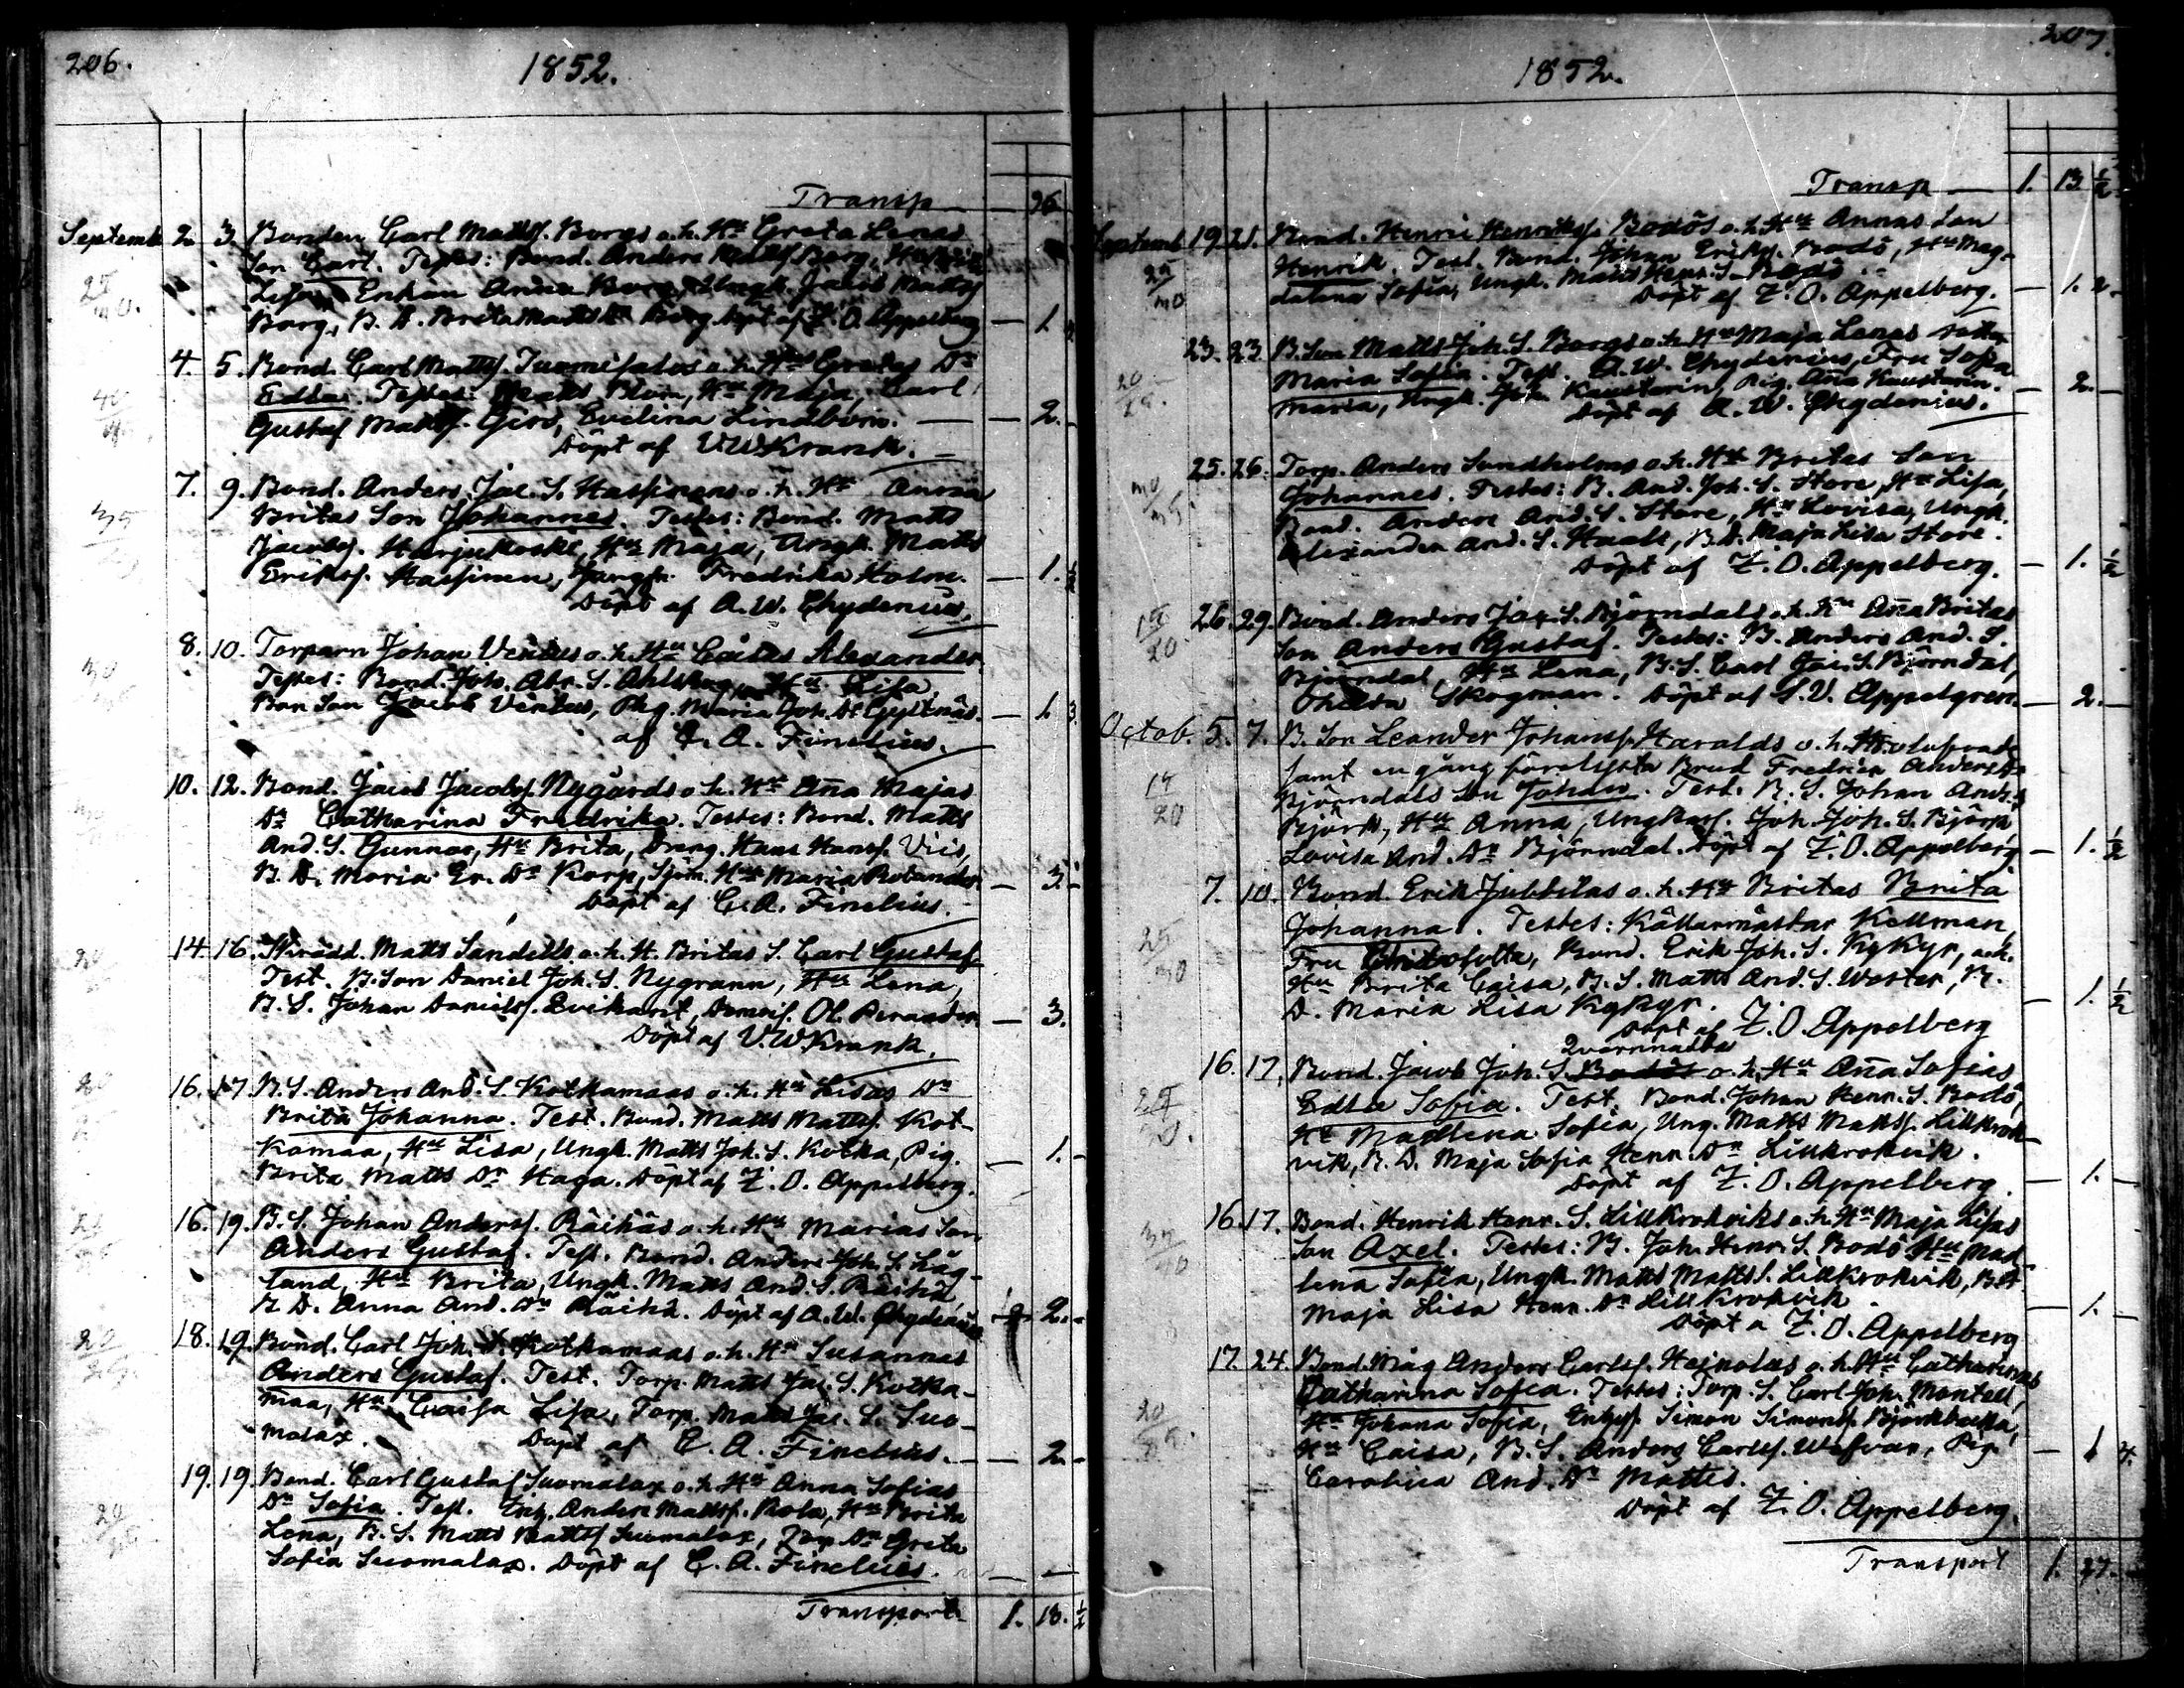 206.
1852.
Transp — 96
Septemb. 2. 3. Bonden Carl Mattss. Borgs o. h. Hu Greta Lenas
Son Carl. Testes: Bond. Anders Mattss. Borg, Hu Brita
Lisa, Enkan Anna Borg, Ungk. Jacob Mattss.
Borg, B. D. Brita Matts Dr Borg. Döpt af Z. O. Appelberg — 1.
4. 5. Bond. Carl Mattss. Tuomisalos o. h. Hus Gretas Dr
Edla. Testes: Matts Blom, Hu Maja, Carl
Gustaf Mattss. Gero, Evelina Lindbom. — 2. -
Döpt af V. W. Krank.
7. 9. Bond. Anders Jac. S. Hassinens o. h. Hu Anna
Britas Son Johannes. Testes: Bond. Matts
Jacobs. Harjukoski, Hu Maja, Ungk. Matts
Erikss. Hassinen, Jungfr. Fredrika Holm. — 1. ½
Döpt af A. W. Chydenius.
8. 10. Torparn Johan Ventus o. h. Hu Caisas Alexander.
Testes: Bond. Joh. Abr. S. Ahlskog, Hu Lisa,
Bon Son Jacob Ventus, Pig. Maria Joh. Dr Gyltnäs. — 1. 3.
af C. A. Finelius.
10. 12. Bond. Jacob Jacobs. Nygårds o. h. Hu Ana Majas
Dr Catharina Fredrika. Testes: Bond. Matts
And. S. Gunnar, Hu Brita, Dreng. Hans Hanss. Viis,
B. D. Maria Er. Dr Korp, Sjöm. Hu Maria Rolander — 3. -
Döpt af C. A. Finelius.
14. 16. Skrädd. Matts Sandells o. h. H. Britas S. Carl Gustaf
Test. B. Son Daniel Joh. S. Nygrann, Hu Lena,
B. S. Johan Daniels. Evikarit, Demois. Ol. Perander — 3.
Döpt af V. W. Krank.
16. 17. B. S. Anders And. S. Kotkamaas o. h. Hu Lisas Dr
Brita Johanna. Test. Bond. Matts Mattss. Kot-
kamaa, Hu Lisa, Ungk. Matts Joh. S. Kotka, Pig.
Brita Matts Dr Haga. Döpt af Z. O. Appelberg. — 1. -
16. 19. B. S. Johan Anderss. Räihäs o. h. Hu Marias Son
Anders Gustaf. Test. Bond. Anders Joh. S. Låg-
land, Hu Brita, Ungk. Matts And. S. Räihä,
B. D. Anna And. Dr Räihä. Döpt af A. W. Chydenius — 2. -
18. 19. Bond. Carl Joh. S. Kotkamaas o. h. Hu Susannas
Anders Gustaf. Test. Torp. Matts Jac. S. Kotka-
maa, Hu Caisa Lisa, Torp. Matts Jac. S. Suo-
malax. Döpt af C. A. Finelius. — 2. -
19. 19. Bond. Carl Gustaf Suomalax o. h. Hu Anna Sofias
Dr Sofia. Test. Enk. Anders Mattss. Hola, Hu Brita
Lena, B. S. Matts Mattss. Suomalax, Torp. Dr Greta
Sofia Suomalax. Döpt af C. A. Finelius. — —
Transport 1. 13. ½
207.
1852.
Transp — 1. 13 ½
Septemb. 19. 21. Bond. Henric Henrikss. Bodös o. h. Hu Annas Son
Henrik. Test. Bond. Johan Erikss. Bodö, Hu Mag-
dalena Sofia, Ungk. Matts Henr. S. Bodö
Döpt af Z. O. Appelberg. — 1. 2.
23. 23. B. Son Matts Joh. S. Borgs o. h. Hu Maja Lenas
Maria Sofia. Test. A. W. Chydenius, Fru Sofia
Maria, Ungk. Joh. Kaustarin, Pig. Ana Kaustarin. — 2. -
Döpt af A. W. Chydenius.
25. 26. Torp. Anders Sundholms o. h. Hu Britas Son
Johannes. Testes: B. And. Joh. S. Store, Hu Lisa,
Bond. Anders And. S. Store, Hu Lovisa, Ungk.
Alexander And. S. Haals, B. D. Maja Lisa Store.
Döpt af Z. O. Appelberg. — 1. ½
26. 29. Bond. Anders Jac. S. Björndals o. h. Hu Ana Britas
Son Anders Gustaf. Testes: B. Anders And. S.
Björndal, Hu Lena, B. S. Carl Jac. S. Björndal,
Thilda Skogman. Döpt af S. V. Appelgren. — 2. -
Octob. 5. 7. B. Son Leander Johanss. Haralds o. h.
samt en gång förelysta Brud Fredrica Anders Dr
Björndals Son Johan. Test. B. S. Johan Ands.
Björk, Hu Anna, Ungkarl. Joh. Joh. S. Björk
Lovisa And. Dr Björndal. Döpt af Z. O. Appelberg — 1. ½
7. 10. Bond. Erik Jubbilas o. h. Hu Britas Brita
Johanna. Testes: Källarmästar Kellman,
Fru, Bond. Erik Joh. S. Kykyr, och.
Hu Brita Caisa, B. S. Matts And. S. Wester, B.
D. Maria Lisa Kykyr. — 1. ½
Döpt af Z. O. Appelberg
16. 17. Bond. Jacob Joh. S. Bodös Qvarnnabba o. h. Hu Ana Sofias
Edla Sofia. Test. Bond. Johan Henr. S. Bodö,
Hu Madlena Sofia, Ung. Matts Mattss. Lillkrok-
vik, B. D. Maja Sofia Henr. Dr Lillkrokvik.
Döpt af Z. O. Appelberg. — 1. -
16. 17. Bond. Henrik Henr. S. Lillkrokviks o. h. Hu Maja Lisas
Son Axel. Testes: B. Joh. Henr. S. Bodö Hu Mad
lena Sofia, Ungk. Matts Matts S. Lillkrokvik, B. D.
Maja Lisa Henr. Dr Lillkrokvik. — 1. -
Döpt a Z. O. Appelberg
17. 24. Bond. Måg Anders Carlss. Hajnolas o. h. Hu Catharinas
Catharina Sofia. Testes: Torp. S. Carl Joh. Montell,
Hu Johana Sofia, Simon Simonss. Björkbacka,
Hu Caisa, B. S. Anders Carlss. Wasvar, Pig. — 1 4.
Carolina And. Dr Mattis.
Döpt af Z. O. Appelberg.
Transport 1. 27. -